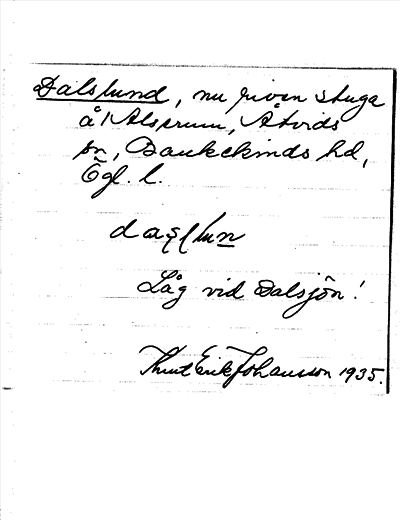 Dalslund, nu riven stuga
å Alsrum, Åtvids
sn, Bankekinds hd,
Ögl. l.
Låg vid Dalsjön!
Knut Erik Johansson 1935.